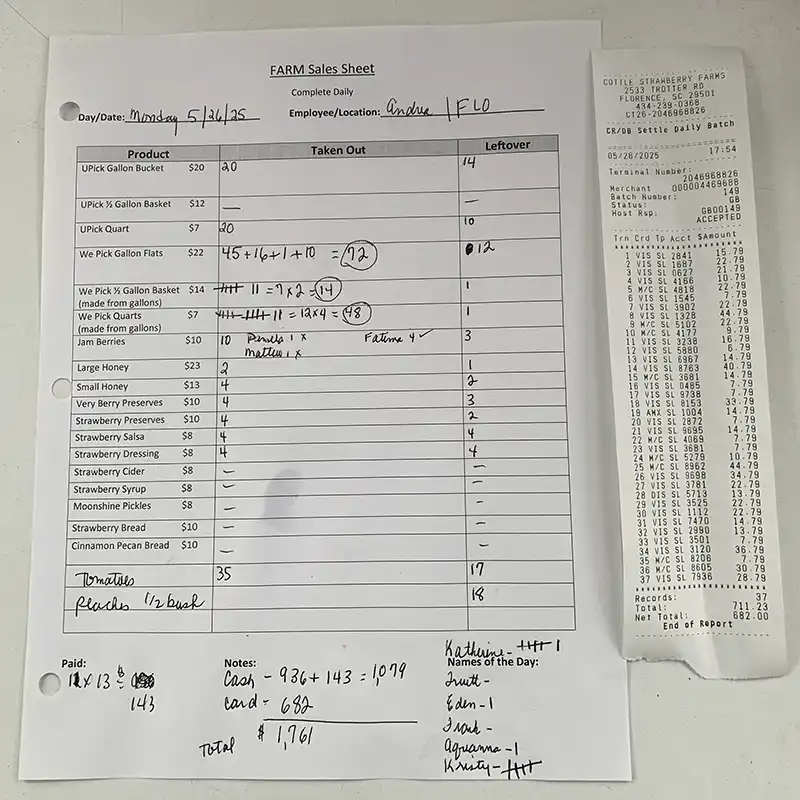 FARM Sales Sheet
Complete Daily
Day/Date: Monday 5/26/25 Employee/Location: Andrea | FLO
Product Taken Out Leftover
UPick Gallon Bucket $20 20 14
UPick ½ Gallon Basket $12 — —
UPick Quart $7 20 10
We Pick Gallon Flats $22 45+16+1+10 = 72 12
We Pick ½ Gallon Basket $14 11 = 7x2 = 14 1
(made from gallons)
We Pick Quarts $7 11 = 12x4 = 48 1
(made from gallons)
Jam Berries $10 10 1 x Fatima 4 ✓ 3
1 x
Large Honey $23 2 1
Small Honey $13 4 2
Very Berry Preserves $10 4 3
Strawberry Preserves $10 4 2
Strawberry Salsa $8 4 4
Strawberry Dressing $8 4 4
Strawberry Cider $8 — —
Strawberry Syrup $8 — —
Moonshine Pickles $8 — —
Strawberry Bread $10 — —
Cinnamon Pecan Bread $10 — —
Tomatoes 35 17
Peaches 1/2 bush 18
Katherine - 1
Paid: Notes: Names of the Day:
11 x 13 =
143
Cash - 936 + 143 = 1,079
card - 682
Total $ 1,761
Eden - 1
Frank -
Aquanna - 1
Kristy -
COTTLE STRAWBERRY FARMS
2533 TROTTER RD
FLORENCE, SC 29501
434-239-0368
C126-2046968826
CR/DB Settle Daily Batch
05/26/2025 17:54
Terminal Number:
2046968826
Merchant 000004469688
Batch Number: 149
Status: GB
Host Rsp: GB00149
ACCEPTED
Trn Crd Tp Acct $Amount
1 VIS SL 2841 15.79
2 VIS SL 1687 22.79
3 VIS SL 0627 21.79
4 VIS SL 4166 10.79
5 M/C SL 4818 22.79
6 VIS SL 1545 7.79
7 VIS SL 3902 22.79
8 VIS SL 1328 44.79
9 M/C SL 5102 22.79
10 M/C SL 4177 9.79
11 VIS SL 3238 16.79
12 VIS SL 5880 6.79
13 VIS SL 6967 14.79
14 VIS SL 8763 40.79
15 M/C SL 3681 14.79
16 VIS SL 0485 7.79
17 VIS SL 9738 7.79
18 VIS SL 8153 33.79
19 AMX SL 1004 14.79
20 VIS SL 2872 7.79
21 VIS SL 9695 14.79
22 M/C SL 4069 7.79
23 VIS SL 3681 7.79
24 M/C SL 5279 10.79
25 M/C SL 8962 44.79
26 VIS SL 9698 34.79
27 VIS SL 3781 22.79
28 DIS SL 5713 13.79
29 VIS SL 3525 22.79
30 VIS SL 1112 22.79
31 VIS SL 7470 14.79
32 VIS SL 2990 13.79
33 VIS SL 3501 7.79
34 VIS SL 3120 36.79
35 M/C SL 8206 7.79
36 M/C SL 8605 30.79
37 VIS SL 7936 28.79
Records: 37
Total: 711.23
Net Total: 682.00
End of Report